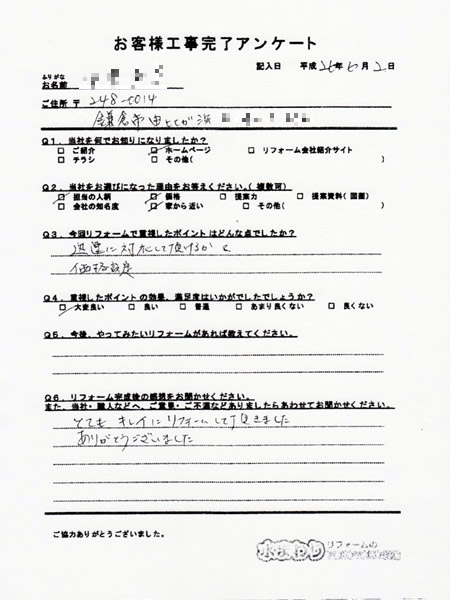 お客様工事完了アンケート
記入日 平成 26年 6月 2日
ふりがな
お名前
ご住所 〒 248-0014
鎌倉市由比が浜
Q1. 当社を何でお知りになりましたか?
□ ご紹介 ☑ ホームページ □ リフォーム会社紹介サイト
□ チラシ □ その他( )
Q2. 当社をお選びになった理由をお答えください。(複数可)
☑ 担当の人柄 ☑ 価格 □ 提案力 □ 提案資料(図面)
□ 会社の知名度 ☑ 家から近い □ その他( )
Q3. 今回リフォームで重視したポイントはどんな点でしたか?
迅速に対応して頂けるかと
価格設定
Q4. 重視したポイントの効果、満足度はいかがでしたでしょうか?
☑ 大変良い □ 良い □ 普通 □ あまり良くない □ 良くない
Q5. 今後、やってみたいリフォームがあれば教えてください。
Q6. リフォーム完成後の感想をお聞かせください。
また、当社・職人などへ、ご意見・ご不満などありましたらあわせてお聞かせください。
とても キレイにリフォームして頂きました
ありがとうございました
ご協力ありがとうございました。
リフォームの